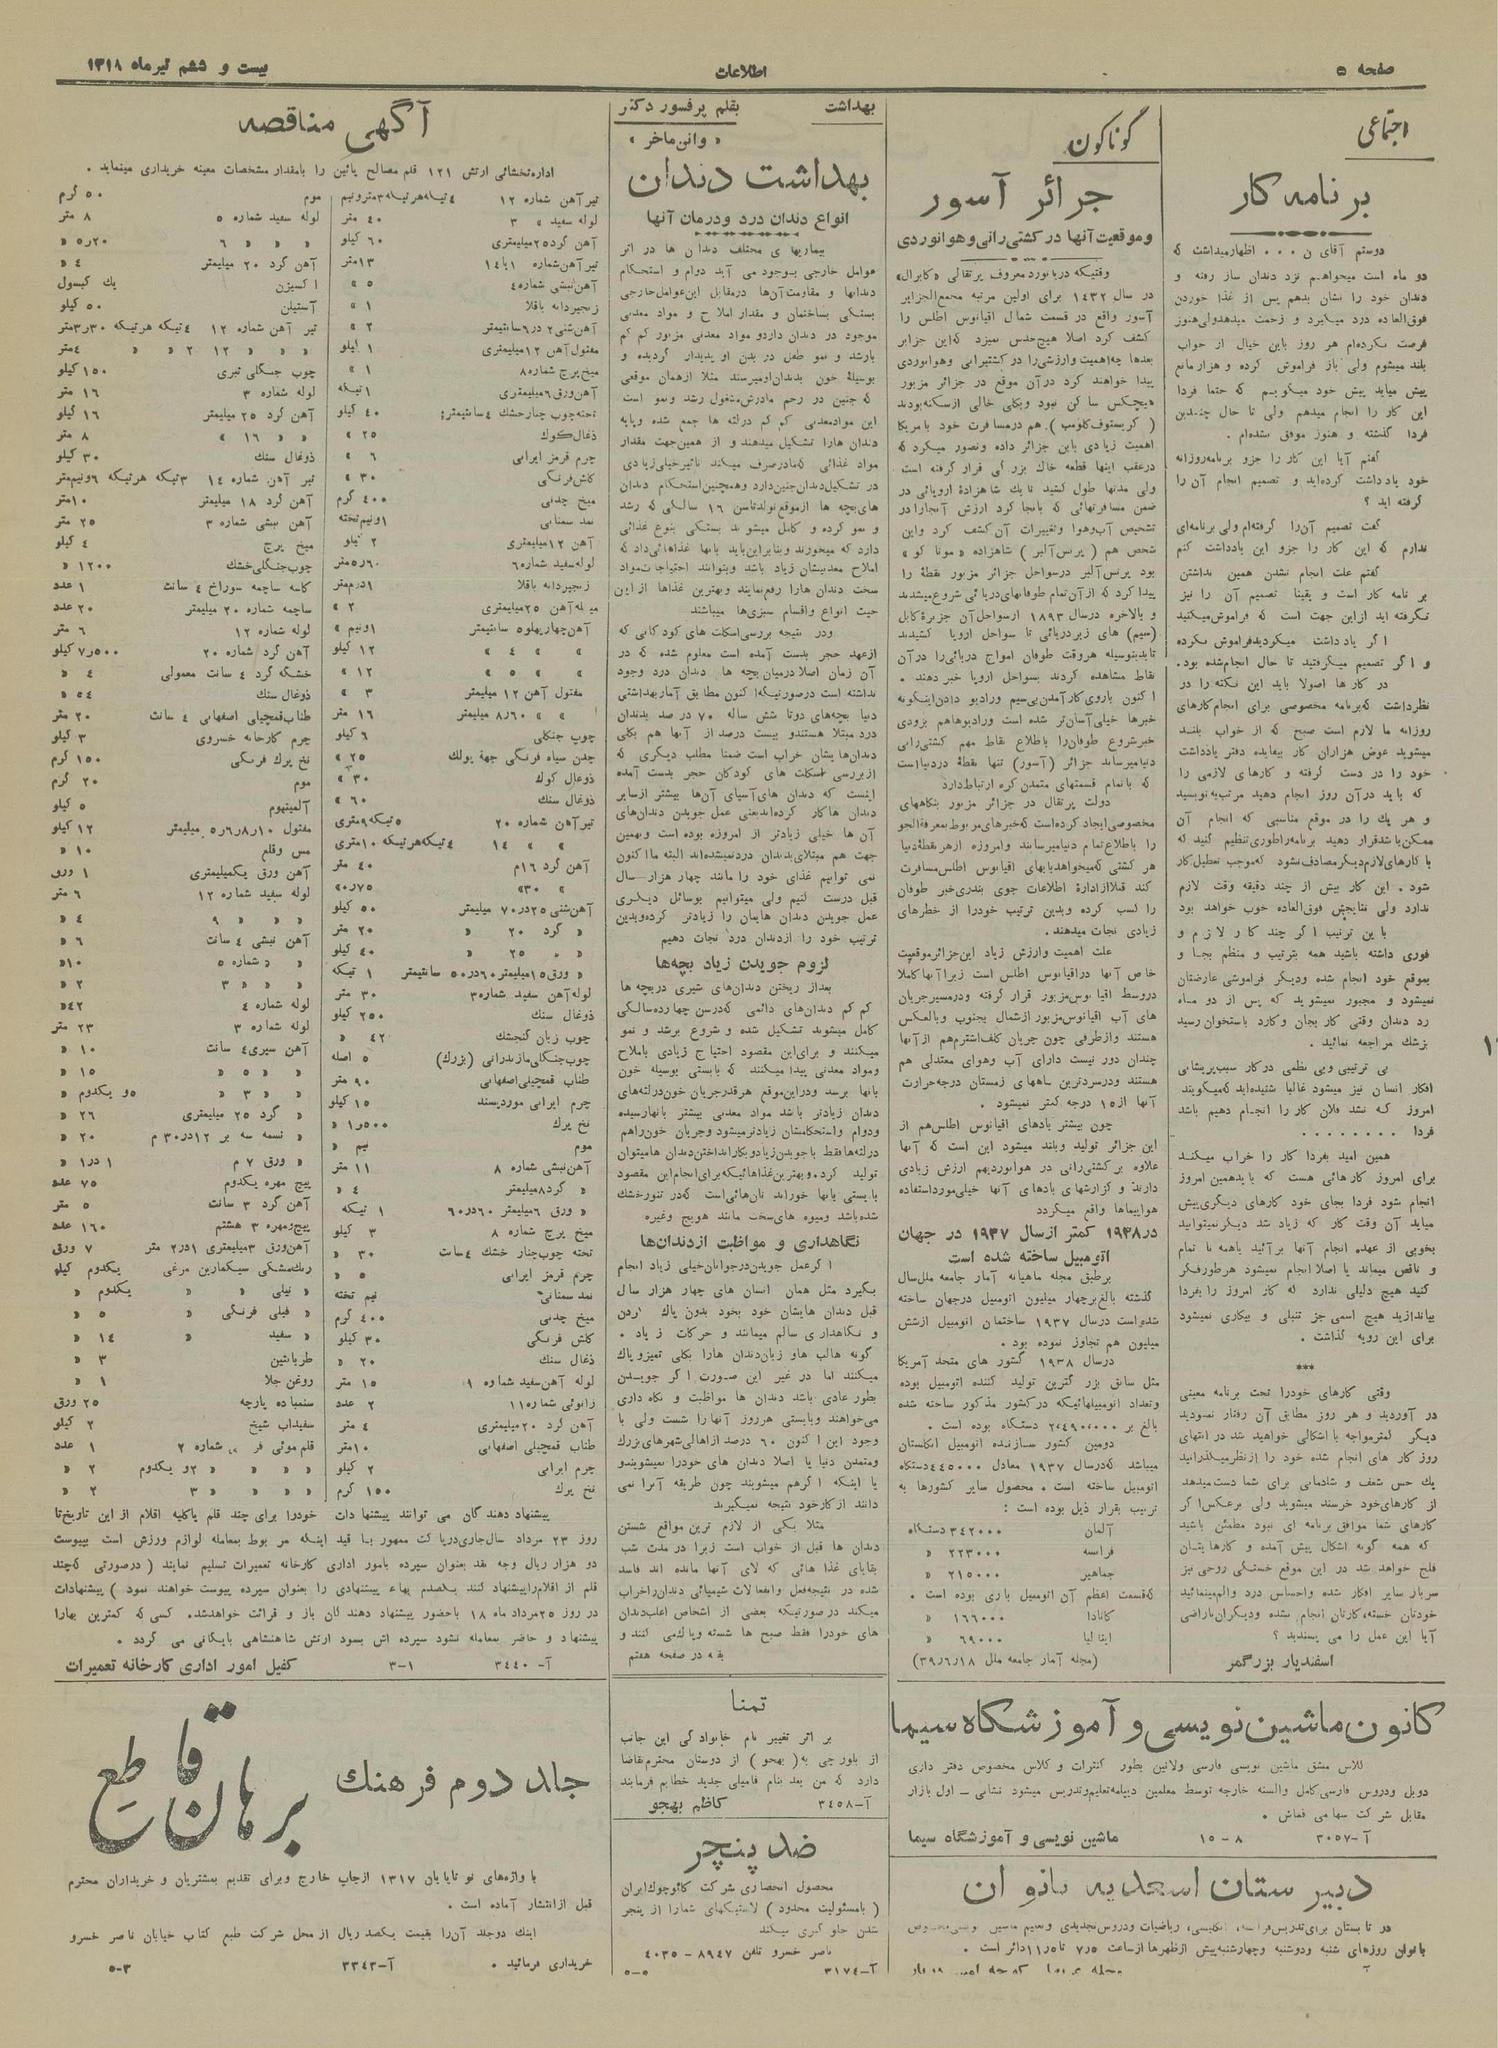 صفحه ۵
اطلاعات
بیست و ششم تیرماه ۱۳۱۸
اجتماعی
برنامه کار
دوستم آقای ن ۰۰۰ اظهارمیداشت که
دو ماه است میخواهیم نزد دندان ساز رفته و
دندان خود را نشان بدهم پس از غذا خوردن
فوق‌العاده درد میگیرد و زحمت میدهدولی‌هنوز
فرصت نکرده‌ام هر روز باین خیال از خواب
بلند میشوم ولی باز فراموش کرده و هزارمانع
پیش میاید پیش خود میگویم که حتما فردا
این کار را انجام میدهم ولی تا حال چندین
فردا گذشته و هنوز موفق نشده‌ام .
گفتم آیا این کار را جزو برنامه‌روزانه
خود یادداشت کرده‌اید و تصمیم انجام آن را
گرفته اید ؟
گفت تصمیم آن‌را گرفته‌ام ولی برنامه‌ای
ندارم که این کار را جزو این یادداشت کنم
گفتم علت انجام نشدن همین نداشتن
بر نامه کار است و یقینا تصمیم آن را نیز
نگرفته اید ازاین جهت است که فراموش‌میکنید
اگر یاد داشت میکردیدفراموش نکرده
و اگر تصمیم میگرفتید تا حال انجام‌شده بود.
در کار ها اصولا باید این نکته را در
نظرداشت که‌برنامه مخصوصی برای انجام‌کارهای
روزانه ما لازم است صبح که از خواب بلند
میشوید عوض هزاران کار بیفایده دفتر یادداشت
خود را در دست گرفته و کارهای لازمی را
که باید درآن روز انجام دهید مرتب‌به‌نویسید
و هر یك را در موقع مناسبی که انجام آن
ممکن‌باشدقرار دهید برنامه‌راطوری‌تنظیم کنید که
با کارهای‌لازم‌دیگرمصادف‌نشود که‌موجب تعطیل‌کار
شود . این کار بیش از چند دقیقه وقت لازم
ندارد ولی نتایجش فوق‌العاده خوب خواهد بود
با ین ترتیب اگر چند کار لازم و
فوری داشته باشید همه بترتیب و منظم بجا و
بموقع خود انجام شده ودیگر فراموشی عارضتان
نمیشود و مجبور نمیشوید که پس از دو ماه
رد دندان وقتی کار بجان وکارد باستخوان رسید
بزشك مراجعه نمائید .
بی ترتیبی وبی نظمی درکار سبب‌پریشانی
افکار انسان نیز میشود غالبا شنیده‌اید که‌میگویند
امروز که نشد فلان کار را انجام دهیم باشد
فردا . . . . . . . .
همین امید بفردا کار را خراب میکند
برای امروز کارهائی هست که بایدهمین امروز
انجام شود فردا بجای خود کارهای دیگری‌پیش
میاید آن وقت کار که زیاد شد دیگرنمیتوانید
بخوبی از عهده انجام آنها برآئید یاهمه نا تمام
و ناقص میماند یا اصلا انجام نمیشود هرطورفکر
کنید هیچ دلیلی ندارد که کار امروز را بفردا
بیاندازید هیچ اسمی جز تنبلی و بیکاری نمیشود
برای این رویه گذاشت .
***
وقتی کارهای خودرا تحت برنامه معینی
در آوردید و هر روز مطابق آن رفتار نمودید
دیگر کمترمواجه با اشکالی خواهید شد در انتهای
روز کار های انجام شده خود را ازنظرمیگذرانید
یك حس شعف و شادمانی برای شما دست‌میدهد
از کارهای‌خود خرسند میشوید ولی برعکس‌اگر
کارهای شما موافق برنامه ای نبود مطمئن باشید
که همه گونه اشکال پیش آمده و کارهایتان
فلج خواهد شد در این موقع خستگی روحی نیز
سربار سایر افکار شده واحساس درد والم‌مینمائید
خودتان خسته،کارتان انجام نشده ودیگران‌ناراضی
آیا این عمل را می پسندید ؟
اسفندیار بزرگمر
گوناگون
جزائر آسور
وموقعیت آنها در کشتی‌رانی وهوانوردی
وقتیکه دریانورد معروف پرتقالی «کابرال»
در سال ۱۴۳۲ برای اولین مرتبه مجمع‌الجزایر
آسور واقع در قسمت شمال اقیانوس اطلس را
کشف کرد اصلا هیچ‌حدس نمیزد که‌این جزایر
بعدها چه‌اهمیت وارزشی‌را در کشتیرانی وهوانوردی
پیدا خواهند کرد درآن موقع در جزائر مزبور
هیچکس سا کن نبود وبکلی خالی ازسکنه‌بودند
( کریستوف‌کلومب ). هم درمسافرت خود بامریکا
اهمیت زیادی باین جزائر داده وتصور میکرد که
درعقب اینها قطعه خاك بزرگی قرار گرفته است
ولی مدتها طول کشید تایك شاهزادهٔ اروپائی در
ضمن مسافرتهائی که بانجا کرد ارزش آنجارا در
تشخیص آب‌وهوا وتغییرات آن کشف کرد واین
شخص هم ( پرنس‌آلبر ) شاهزاده «مونا کو»
بود پرنس‌آلبر درسواحل جزائر مزبور نقطهٔ را
پیدا کرد که ازآن‌تمام طوفانهای‌دریائی شروع‌میشدند
و بالاخره درسال ۱۸۹۳ ازسواحل‌آن جزیرهٔ کابل
(سیم) های زیردریائی تا سواحل اروپا کشیدند
تابدینوسیله هروقت طوفان امواج دریائی‌را درآن
نقاط مشاهده کردند بسواحل اروپا خبر دهند .
اکنون باروی کارآمدن بی‌سیم ورادیو دادن‌اینگونه
خبرها خیلی‌آسان‌تر شده است ورادیوهاهم بزودی
خبرشروع طوفان‌را باطلاع نقاط مهم کشتی‌رانی
دنیامیرساند جزائر (آسور) تنها نقطهٔ دردنیااست
که باتمام قسمتهای متمدن کره ارتباط‌دارد
دولت پرتقال در جزائر مزبور بنگاههای
مخصوصی‌ایجاد کرده‌است که‌خبرهای‌مربوط بمعرفةالجو
را باطلاع‌تمام دنیامیرسانند وامروزه ازهرنقطهٔ‌دنیا
هر کشتی که‌میخواهدبابهای اقیانوس اطلس‌مسافرت
کند قبلاازادارهٔ اطلاعات جوی بندری‌خبر طوفان
را کسب کرده وبدین ترتیب خودرا از خطرهای
زیادی نجات میدهند.
علت اهمیت وارزش زیاد این‌جزائرموقعیت
خاص آنها دراقیانوس اطلس است زیرا آنهاکاملا
دروسط اقیانوس‌مزبور قرار گرفته ودرمسیرجریان
های آب اقیانوس‌مزبور ازشمال بجنوب وبالعکس
هستند وازطرفی چون جریان گلف‌اشترم‌هم ازآنها
چندان دور نیست دارای آب وهوای معتدلی هم
هستند ودرسردترین ماههای زمستان درجه‌حرارت
آنها از۱۵ درجه کمتر نمیشود .
چون بیشتر بادهای اقیانوس اطلس‌هم از
این جزائر تولید وبلند میشود این است که آنها
علاوه برکشتی‌رانی در هوانوردیهم ارزش زیادی
دارند و گزارشهای بادهای آنها خیلی‌مورداستفاده
هواپیماها واقع میگردد
در۱۹۳۸ کمتر ازسال ۱۹۳۷ در جهان
اتومبیل ساخته شده است
برطبق مجله ماهیانه آمار جامعه ملل‌سال
گذشته بالغ‌برچهار میلیون اتومبیل درجهان ساخته
شده‌است درسال ۱۹۳۷ ساختمان اتومبیل ازشش
میلیون هم تجاوز نموده بود .
درسال ۱۹۳۸ کشور های متحد آمریکا
مثل سابق بزرگترین تولید کننده اتومبیل بوده
وتعداد اتومبیلهائیکه در کشور مذکور ساخته شده
بالغ بر ۲،۴۹۰،۰۰۰ دستگاه بوده است .
دومین کشور سازنده اتومبیل انگلستان
میباشد که‌درسال ۱۹۳۷ معادل ۴۴۵۰۰۰دستگاه
اتومبیل ساخته است . محصول سایر کشورها به
ترتیب بقرار ذیل بوده است :
آلمان ۳۴۲۰۰۰ دستگاه
فرانسه ۲۲۳۰۰۰ «
جماهیر ۲۱۵۰۰۰ «
که‌قسمت اعظم آن اتومبیل باری بوده است .
کانادا ۱۶۶۰۰۰ «
ایتالیا ۶۹۰۰۰ «
(مجله آمار جامعه ملل ۳۹٫۶٫۱۸)
بهداشت
بقلم پرفسور دکتر
« وانن‌ماخر »
بهداشت دندان
انواع دندان درد ودرمان آنها
بیماریهای مختلف دندان ها در اثر
عوامل خارجی بوجود می آید دوام و استحکام
دندانها و مقاومت‌آن‌ها درمقابل این‌عوامل‌خارجی
بستگی بساختمان و مقدار املاح و مواد معدنی
موجود در دندان داردو مواد معدنی مزبور کم کم
بارشد و نمو طفل در بدن او پدیدار گردیده و
بوسیلهٔ خون بدندان‌اومیرسند مثلا ازهمان موقعی
که جنین در رحم مادرش‌مشغول رشد ونمو است
این موادمعدنی کم کم درلثه ها جمع شده وپایه
دندان هارا تشکیل میدهند و از همین‌جهت مقدار
مواد غذائی که‌مادرصرف میکند تاثیرخیلی‌زیادی
در تشکیل‌دندان‌جنین‌دارد وهمچنین‌استحکام دندان
های‌بچه ها ازموقع‌تولدتاسن ۱۶ سالگی که رشد
و نمو کرده و کامل میشوند بستگی بنوع غذائی
دارد که میخورند وبنابراین‌باید بانها غذاهائی‌داد که
املاح معدنیشان زیاد باشد وبتوانند احتیاجات‌مواد
سخت دندان هارا رفع‌نمایند وبهترین غذاها ازاین
حیث انواع واقسام سبزی‌ها میباشند
ودر نتیجه بررسی‌اسکلت های کودکانی که
ازعهد حجر بدست آمده است معلوم شده که در
آن زمان اصلا درمیان‌بچه ها دندان درد وجود
نداشته است درصورتیکه‌اکنون مطابق آماربهداشتی
دنیا بچه‌های دوتا شش ساله ۷۰ درصد بدندان
درد مبتلا هستندو بیست درصد از آنها هم بکلی
دندان‌هایشان خراب است ضمنا مطلب دیگری که
ازبررسی اسکلت های کودکان حجر بدست آمده
اینست که دندان های‌آسیای آن‌ها بیشتر ازسایر
دندان هاکار کرده‌اندیعنی عمل جویدن دندان‌های
آن ها خیلی زیادتر از امروزه بوده است وبهمین
جهت هم مبتلای‌بدندان دردنمیشده‌اند البته ما اکنون
نمی توانیم غذای خود را مانند چهار هزار سال
قبل درست کنیم ولی میتوانیم بوسائل دیگری
عمل جویدن دندان هایمان را زیادتر کرده‌وبدین
ترتیب خود را ازدندان درد نجات دهیم
لزوم جویدن زیاد بچه‌ها
بعداز ریختن دندان‌های شیری دربچه ها
کم کم دندان‌های دائمی که‌درسن چهارده‌سالگی
کامل میشوند تشکیل شده و شروع برشد و نمو
میکنند و برای‌این مقصود احتیاج زیادی باملاح
ومواد معدنی پیدا میکنند که بایستی بوسیله خون
بانها برسد ودراین‌موقع هرقدرجریان خون‌درلثه‌های
دندان زیادتر باشد مواد معدنی بیشتر بانهارسیده
ودوام واستحکامشان زیادترمیشود وجریان خون‌راهم
درلثه‌هافقط باجویدن‌زیادوبکارانداختن‌دندان هامیتوان
تولید کرد،وبهترین‌غذاهائیکه‌برای‌انجام‌این مقصود
بایستی بانها خوراند نان‌هائی است که‌در تنورخشك
شده‌باشد ومیوه های‌سخت مانند هویج وغیره
نگاهداری و مواظبت ازدندان‌ها
اگرعمل جویدن‌درجوانان‌خیلی زیاد انجام
بگیرد مثل همان انسان های چهار هزار سال
قبل دندان هایشان خود بخود بدون پاك کردن
و نگاهداری سالم میمانند و حرکات زیاد .
گونه هالب هاو زبان‌دندان هارا بکلی تمیزوپاك
میکنند اما در غیر این صورت اگر جویدن
بطور عادی باشد دندان ها مواظبت و نگاه داری
می‌خواهند وبایستی هرروز آنهارا شست ولی با
وجود این اکنون ۶۰ درصد ازاهالی‌شهرهای‌بزرك
ومتمدن دنیا یا اصلا دندان های خودرانمیشویندو
یا اینکه اگرهم میشویند چون طریقه آنرا نمی
دانند ازکارخود نتیجه نمیگیرند
مثلا یکی از لازم ترین مواقع شستن
دندان ها قبل از خواب است زیرا در مدت شب
بقایای غذا هائی که لای آنها مانده اند فاسد
شده در نتیجه‌فعل وانفعالات شیمیائی دندان‌راخراب
میکند در صورتیکه بعضی از اشخاص اغلب‌دندان
های خودرا فقط صبح ها شسته وپاك‌می کنند و
بقیه در صفحه هفتم
آگهی مناقصه
اداره‌تخشائی ارتش ۱۲۱ قلم مصالح پائین را بامقدار مشخصات معینه خریداری مینماید .
تیرآهن شماره ۱۲ ۴تیکه‌هرتیکه ۳مترونیم
لوله سفید » ۳ ۴۰ متر
آهن گرد۲۵میلیمتری ۶۰ کیلو
تیرآهن‌شماره ۱یا۱۴ ۱۳متر
آهن‌نبشی شماره۴ ۵ »
زنجیردانه باقلا ۱ »
آهن‌شنی ۲در۶سانتیمتر ۲ »
مفتول آهن ۱۲میلیمتری ۱ کیلو
میخ‌پرچ شماره۸ ۱ »
آهن‌ورق ۶میلیمتری ۱تیکه
تخته‌چوب چنارخشك ۴سانتیمتر: ۴۰ کیلو
ذغال‌کوك ۲۵ »
چرم قرمز ایرانی ۶ »
کاش‌فرنگی ۳۰ »
میخ چدنی ۴۰۰ گرم
نمد سمنانی ۱ونیم‌تخته
آهن ۱۲میلیمتری ۲ کیلو
لوله‌سفید شماره۶ ۶۰ر۵متر
زنجیردانه باقلا ۱درم‌متر
میله آهن ۲۵میلیمتری ۲ »
آهن‌چهارپهلو۵ سانتیمتر ۱ونیم »
» » ۴ » ۱۲ کیلو
» » ۵ » ۱۲ »
مفتول آهن ۱۲ میلیمتر ۳ »
» » ۶۰ر۸ میلیمتر ۱۶ متر
چوب جنگلی ۶ کیلو
چدن سیاه فرنگی جهة پولك ۲۵ »
ذوغال کوك ۳۰ »
ذوغال سنك ۶۰ »
تیرآهن شماره ۲۰ ۵تیکه۹متری
» » ۱۴ ۴تیکه‌هرتیکه ۱۰متری
آهن گرد ۱۶م ۴۰ متر
» ۳۰» ۷۵ر۰»
آهن‌شنی۲۵در۷۰ میلیمتر ۵۰ کیلو
« گرد ۲۰ « ۲۰ متر
« ۲۵ « ۴۰ کیلو
« ورق۱۵میلیمتر۶۰در۵۰ سانتیمتر ۱ تیکه
لوله‌آهن سفید شماره۳ ۳۰ متر
ذوغال سنك ۲۵۰ کیلو
چوب زبان گنجشك ۴۲ «
چوب‌جنگلی‌مازندرانی (بزرك) ۵ اصله
طناب قمچیلی‌اصفهانی ۹۰ متر
چرم ایرانی موردپسند ۱۵ کیلو
نخ پرك ۵۰۰ر۱ «
موم نیم «
آهن‌نبشی شماره ۸ ۱۱ متر
« گرد۸میلیمتر ۴ «
« ورق ۶میلیمتر ۶۰در۶۰ ۱ تیکه
میخ پرچ شماره ۸ ۳ کیلو
تخته چوب‌چنار خشك ۴سانت ۳۰ «
چرم قرمز ایرانی ۵ «
نمد سمنانی نیم تخته
میخ چدنی ۴۰۰ گرم
کاش فرنگی ۳۰ کیلو
ذغال سنك ۲۰ «
لوله آهن‌سفید شماره ۱ ۱۵ متر
زانوئی شماره۱۱ ۲ عدد
آهن گرد ۲۰میلیمتری ۴ متر
طناب قمچیلی اصفهانی ۱۰متر
چرم ایرانی ۲ کیلو
نخ پرك ۱۵۰ گرم
موم ۵۰ گرم
لوله سفید شماره ۵ ۸ متر
« « « ۶ ۲۰ر۵ «
آهن گرد ۲۰ میلیمتر ۴ «
اکسیزن یك کپسول
آستیلن ۵۰ کیلو
تیر آهن شماره ۱۲ ۴تیکه هرتیکه ۳۰ر۳متر
« « « ۱۲ ۲ « « ۴متر
چوب جنگلی تبری ۱۵۰ کیلو
لوله شماره ۳ ۱۶ متر
آهن گرد ۲۵ میلیمتر ۱۶ کیلو
« « ۱۶ « ۸ متر
ذوغال سنك ۳۰ کیلو
تیر آهن شماره ۱۴ ۳تیکه هرتیکه ۶ونیم‌متر
آهن گرد ۱۸ میلیمتر ۱۰متر
آهن نبشی شماره ۳ ۲۵ متر
میخ پرچ ۴ کیلو
چوب‌جنگلی‌خشك ۱۲۰۰ «
کاسه ساچمه سوراخ ۴ سانت ۱ عدد
ساچمه شماره ۲۰ میلیمتر ۲۰ عدد
لوله شماره ۱۲ ۶ متر
آهن گرد شماره ۲۰ ۵۰۰ر۷ کیلو
خشکه گرد ۴ سانت معمولی ۴ «
ذوغال سنك ۵۴ «
طناب‌قمچیلی اصفهانی ۴ سانت ۲۰ متر
چرم کارخانه خسروی ۳ کیلو
نخ پرك فرنگی ۱۵۰ گرم
موم ۲۰ گرم
آلمینیوم ۵ کیلو
مفتول ۱۰ر۸ر۶ر۵ میلیمتر ۱۲ کیلو
مس وقلع ۱۰ «
آهن ورق یکمیلیمتری ۱ ورق
لوله سفید شماره ۱۲ ۶ متر
« « « ۹ ۴ «
آهن نبشی ۴ سانت ۶ «
« « شماره ۵ ۱۰«
« « « ۳ ۲ «
لوله شماره ۴ ۴۲«
لوله شماره ۳ ۲۳ متر
آهن سپری۴ سانت ۱۰ «
« « ۵ « ۱۵ «
« « ۳ « ۵و یکدوم «
« گرد ۲۵ میلیمتری ۲۶ «
« تسمه سه بر ۱۲در۳۰ م ۲۰ «
« ورق ۷ م ۱در۱ «
پیچ مهره یکدوم ۷۵ عدد
آهن گرد ۳ سانت ۵ متر
پیچ‌ومهره ۳ هشتم ۱۶۰ عدد
آهن‌ورق ۳میلیمتری ۱در۲ متر ۷ ورق
رنك‌مشکی سیکمارین مرغی یکدوم کیلو
« نیلی « « یکدوم «
« فیلی فرنگی « ۵ «
« سفید « ۱۴ «
طربانتین ۳ «
روغن جلا ۱ «
سنمباده پارچه ۲۵ ورق
سفیداب شیخ ۲ کیلو
قلم موئی شماره ۲ ۱ عدد
« « « ۲و یکدوم ۲ «
« « « ۳ ۲ «
پیشنهاد دهند گان می توانند پیشنها دات خودرا برای چند قلم یاکلیه اقلام از این تاریخ‌تا
روز ۲۳ مرداد سال‌جاری‌درپاکت ممهور با قید اینکه مر بوط بمعامله لوازم ورزش است بپیوست
دو هزار ریال وجه نقد بعنوان سپرده بامور اداری کارخانه تعمیرات تسلیم نمایند ( درصورتی که‌چند
قلم از اقلام‌راپیشنهاد کنند یکصدم بهاء پیشنهادی را بعنوان سپرده پیوست خواهند نمود ) پیشنهادات
در روز ۲۵مرداد ماه ۱۸ باحضور پیشنهاد دهند گان باز و قرائت خواهدشد. کسی‌که کمترین بهارا
پیشنهاد و حاضر بمعامله نشود سپرده اش بسود ارتش شاهنشاهی بایگانی می گردد .
آ- ۳۴۴۰ ۳-۱ کفیل امور اداری کارخانه تعمیرات
کانون‌ماشین‌نویسی و آموزشگاه سیما
کلاس مشق ماشین نویسی فارسی ولاتین بطور کنترات و کلاس مخصوص دفتر داری
دوبل ودروس فارسی‌کامل والسنه خارجه توسط معلمین دیپلمه‌تعلیم‌وتدریس میشود نشانی - اول بازار
مقابل شرکت سهامی قماش .
آ-۳۰۵۷ ۸-۱۵ ماشین نویسی و آموزشگاه سیما
دبیرستان اسعدیه بانوان
در تا بستان برای‌تدریس‌فرانسه، انگلیسی، ریاضیات ودروس‌تجدیدی وتعلیم ماشین نویسی‌مخصوص
بانوان روزهای شنبه ودوشنبه وچهارشنبه‌پیش ازظهرها ازساعت ۵ر۷ تا۵ر۱۱دائر است .
تمنا
بر اثر تغییر نام خانوادگی این جانب
از بلورچی به( بهجو ) از دوستان محترم‌تقاضا
دارد که من بعد بنام فامیلی جدید خطابم فرمایند
آ-۳۴۵۸ کاظم بهجو
ضد پنچر
محصول انحصاری شرکت کائوچوك‌ایران
( بامسئولیت محدود ) لاستیکهای شمارا از پنچر
شدن جلو گیری میکند
ناصر خسرو تلفن ۸۹۴۷ - ۴۰۳۵
آ-۳۱۷۴ ۵-۵
جلد دوم فرهنك
برهان قاطع
با واژه‌های نو تاپایان ۱۳۱۷ ازچاپ خارج وبرای تقدیم بمشتریان و خریداران محترم
قبل ازانتشار آماده است .
اینك دوجلد آن‌را بقیمت یکصد ریال از محل شرکت طبع کتاب خیابان ناصر خسرو
خریداری فرمائید . آ-۳۳۴۳ ۳-۵